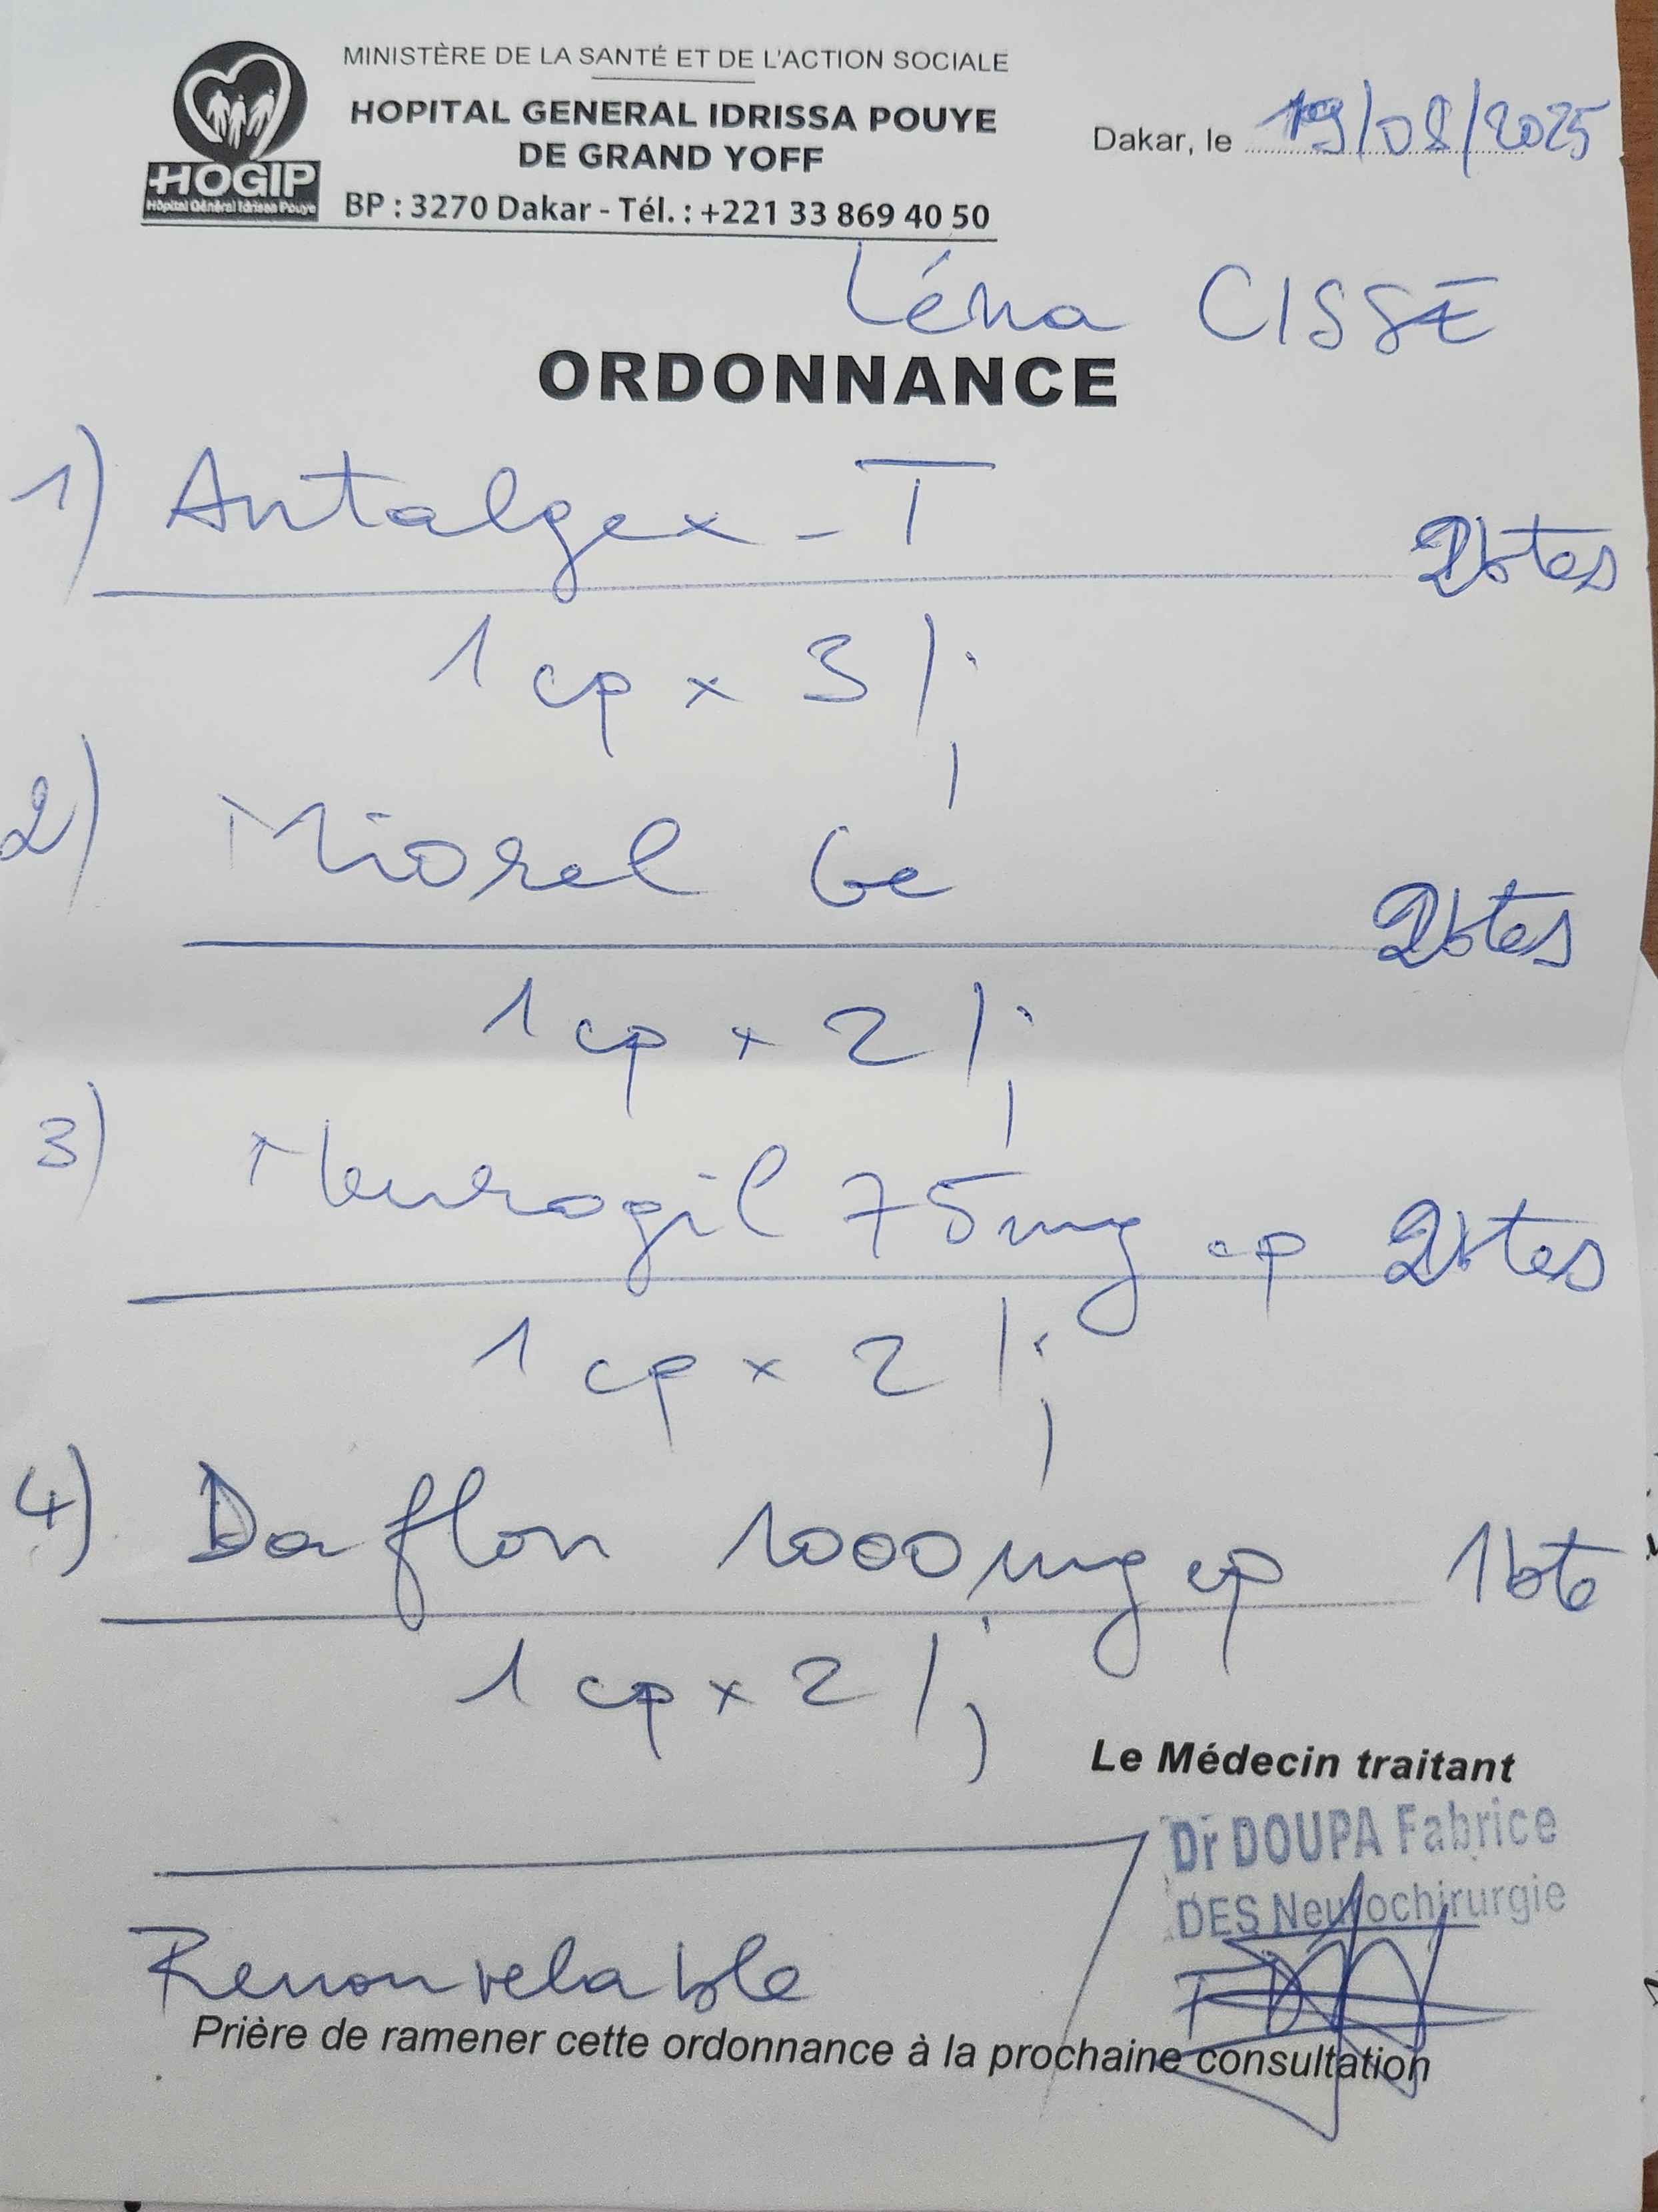 MINISTÈRE DE LA SANTÉ ET DE L'ACTION SOCIALE
HOPITAL GENERAL IDRISSA POUYE
DE GRAND YOFF
BP : 3270 Dakar - Tél. : +221 33 869 40 50
HOGIP
Hôpital Général Idrissa Pouye
Dakar, le 19/08/2025
Léna CISSE
ORDONNANCE
1) Antalgex - T 2btes
1 cp x 3 / j
2) Miorel Ge 2btes
1 cp x 2 / j
3) Neurogil 75mg cp 2btes
1 cp x 2 / j
4) Daflon 1000mg cp 1bte
1 cp x 2 / j
Le Médecin traitant
Dr DOUPA Fabrice
DES Neurochirurgie
Renouvelable
Prière de ramener cette ordonnance à la prochaine consultation